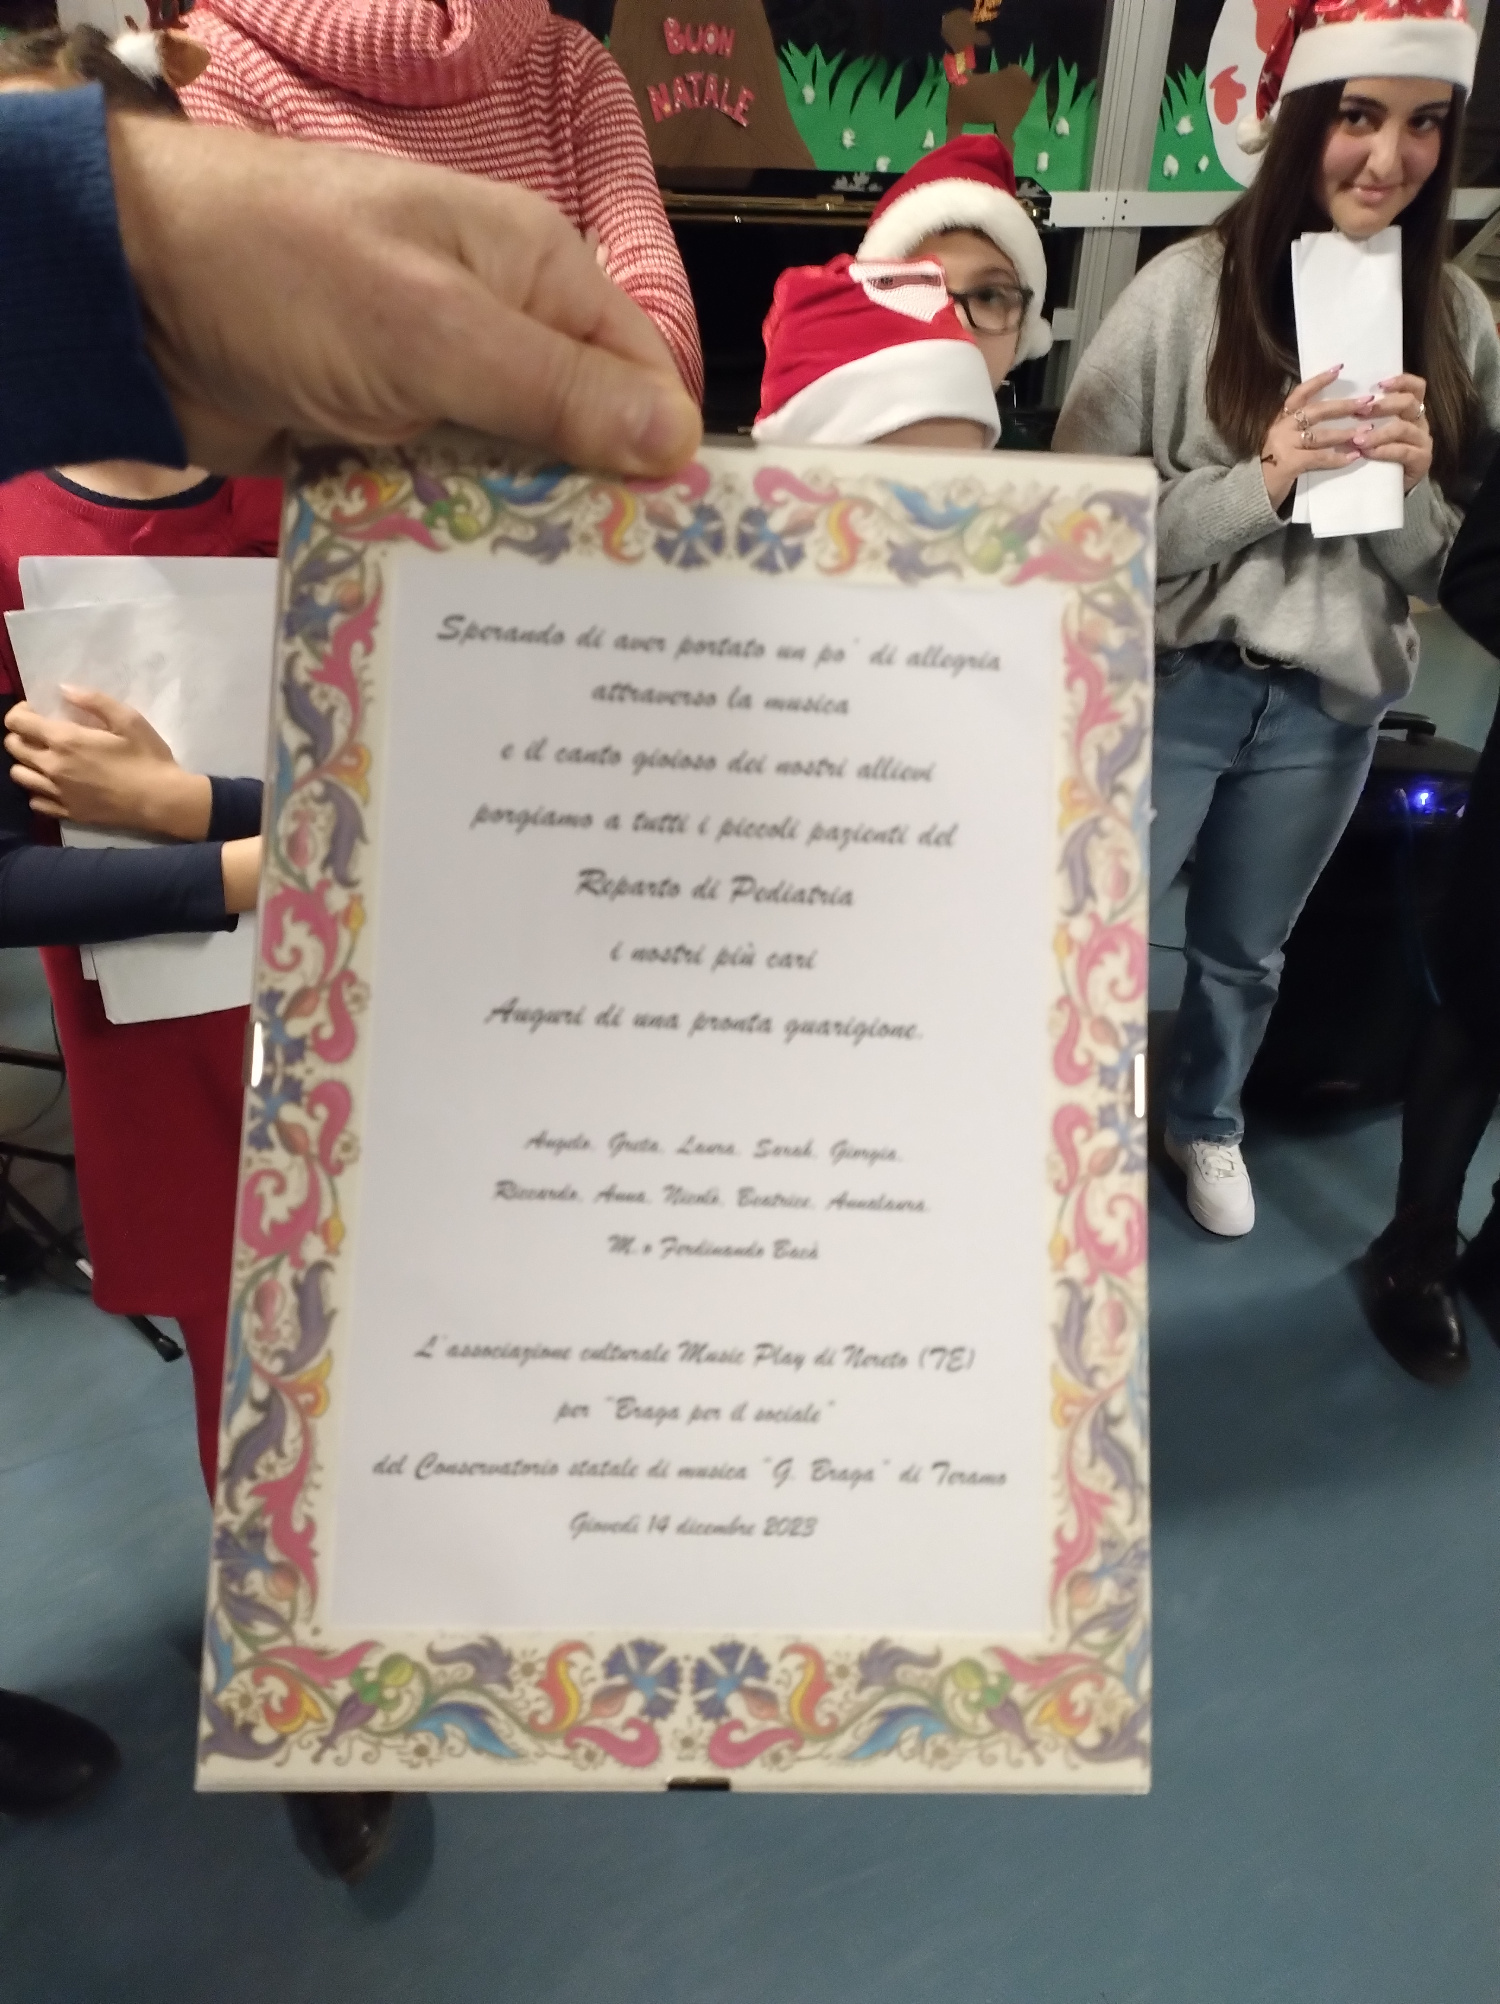 BUON
NATALE
Sperando di aver portato un po' di allegria
attraverso la musica
e il canto gioioso dei nostri allievi
porgiamo a tutti i piccoli pazienti del
Reparto di Pediatria
i nostri più cari
Auguri di una pronta guarigione.
Angelo, Greta, Laura, Sarah, Giorgia,
Riccardo, Anna, Nicolò, Beatrice, Annalaura,
M.o Ferdinando Bacà
L'associazione culturale Music Play di Nereto (TE)
per "Braga per il sociale"
del Conservatorio statale di musica "G. Braga" di Teramo
Giovedì 14 dicembre 2023